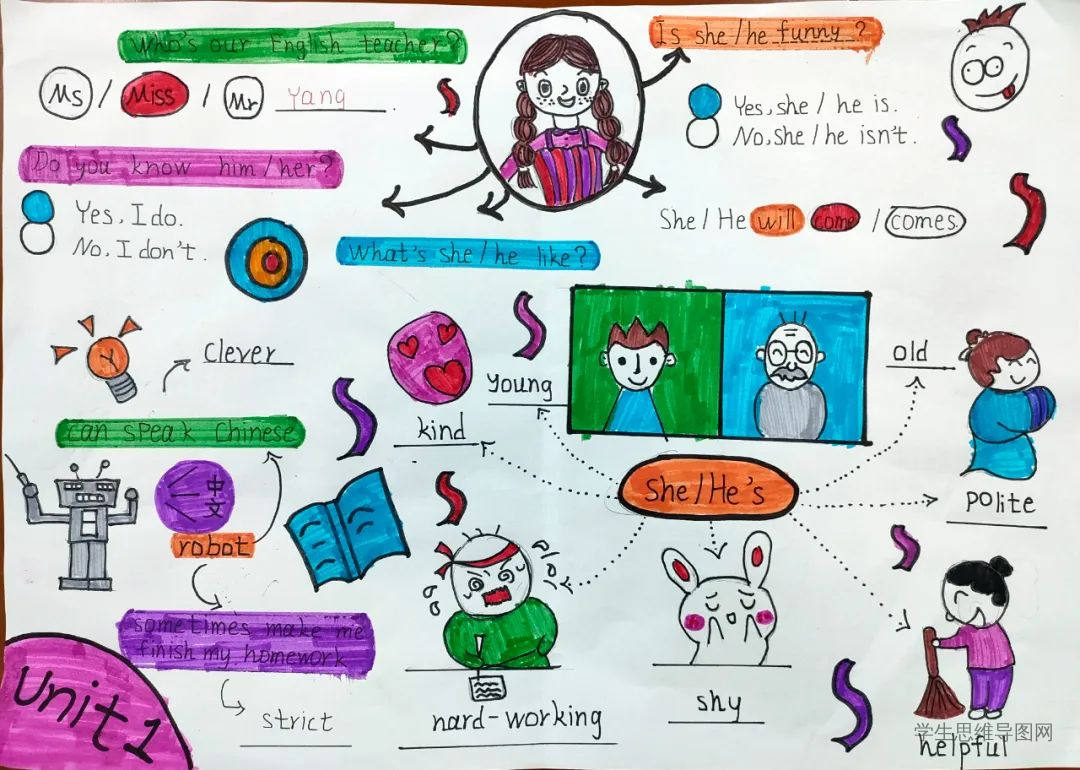 Who's our English teacher?
Ms / Miss / Mr Yang.
Is she/he funny?
Yes, she / he is.
No, she / he isn't.
Do you know him/her?
Yes, I do.
No, I don't.
She/He will come / comes.
What's she/he like?
clever
can speak Chinese
中文
robot
sometimes make me
finish my homework
strict
kind
young
old
She/He's
polite
hard-working
shy
helpful
Unit 1
学生思维导图网